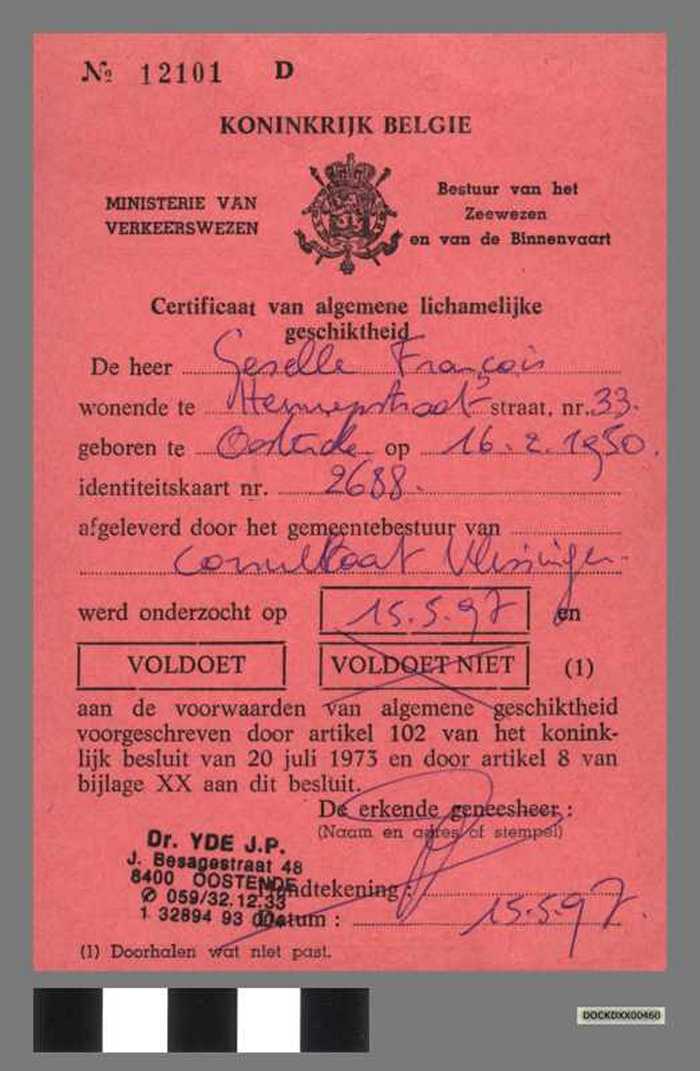 Nº 12101 D
KONINKRIJK BELGIE
MINISTERIE VAN
VERKEERSWEZEN
Bestuur van het
Zeewezen
en van de Binnenvaart
Certificaat van algemene lichamelijke
geschiktheid
De heer Geselle François
wonende te Hennepstraat straat, nr. 33.
geboren te Oostende op 16.2.1950.
identiteitskaart nr. 2688.
afgeleverd door het gemeentebestuur van
Consulaat Vlissingen.
werd onderzocht op 15.5.97 en
VOLDOET VOLDOET NIET (1)
aan de voorwaarden van algemene geschiktheid
voorgeschreven door artikel 102 van het konink-
lijk besluit van 20 juli 1973 en door artikel 8 van
bijlage XX aan dit besluit.
De erkende geneesheer :
(Naam en adres of stempel)
Dr. YDE J.P.
J. Besagestraat 48
8400 OOSTENDE
✆ 059/32.12.33
1 32894 93 004
Handtekening :
Datum : 15.5.97.
(1) Doorhalen wat niet past.
DOCKDXX00460